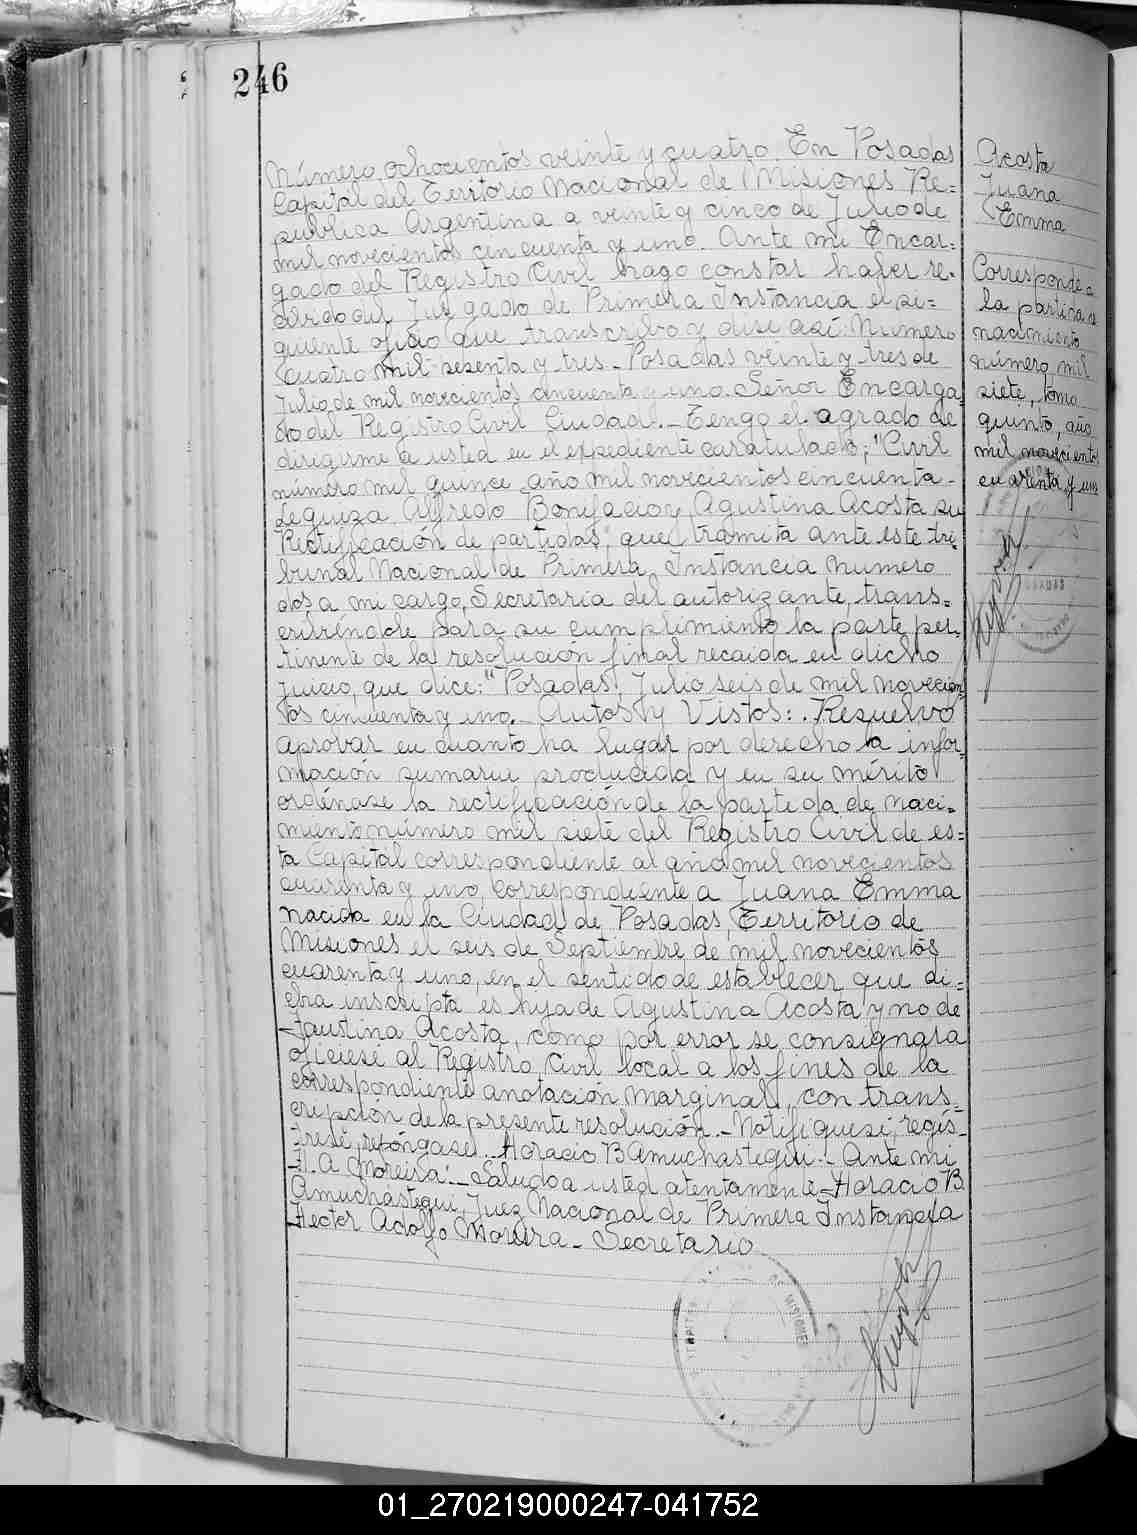 246
Número ochocientos veinte y cuatro. En Posadas
Capital del Territorio Nacional de Misiones Re=
publica Argentina a veinte y cinco de Julio de
mil novecientos cincuenta y uno. Ante mi Encar=
gado del Registro Civil hago constar haber re=
cibido del Juzgado de Primera Instancia el si=
guiente oficio que transcribo y dise así: Número
cuatro mil sesenta y tres - Posadas veinte y tres de
Julio de mil novecientos cincuenta y uno. Señor Encarga
do del Registro Civil Ciudad. - Tengo el agrado de
dirigirme a usted en el expediente caratulado; "Civil
número mil quince año mil novecientos cincuenta -
Leguiza Alfredo Bonifacio y Agustina Acosta su
Rectificación de partidas; que tramita ante este tri
bunal Nacional de Primera Instancia Numero
dos a mi cargo, Secretaria del autorizante, trans=
cribiéndole para su cumplimiento la parte per=
tinente de la resolución final recaida en dicho
juicio, que dice: "Posadas, Julio seis de mil novecien
tos cincuenta y uno. - Autos y Vistos: . Resuelvo
aprovar en cuanto ha lugar por derecho la infor=
mación sumaria producida y en su mérito
ordénase la rectificación de la partida de naci=
miento número mil siete del Registro Civil de es=
ta Capital correspondiente al año mil novecientos
cuarenta y uno, correspondiente a Juana Emma
nacida en la Ciudad de Posadas, Territorio de
Misiones el seis de Septiembre de mil novecientos
cuarenta y uno, en el sentido de establecer que di=
cha inscripta es hija de Agustina Acosta y no de
Faustina Acosta, como por error se consignara
oficiese al Registro Civil local a los fines de la
correspondiente anotación marginal, con trans=
cripción de la presente resolución. - Notifiquese, regís=
trese, repóngase. - Horacio B Amuchastegui. - Ante mi
H. A Moreira. - Saludo a usted atentamente = Horacio B
Amuchastegui, Juez Nacional de Primera Instancia
Hector Adolfo Moreira - Secretario
Acosta
Juana
Emma
Corresponde a
la partida de
nacimiento
número mil
siete, tomo
quinto, año
mil novecientos
cuarenta y uno
DE MISIONES
01_270219000247-041752